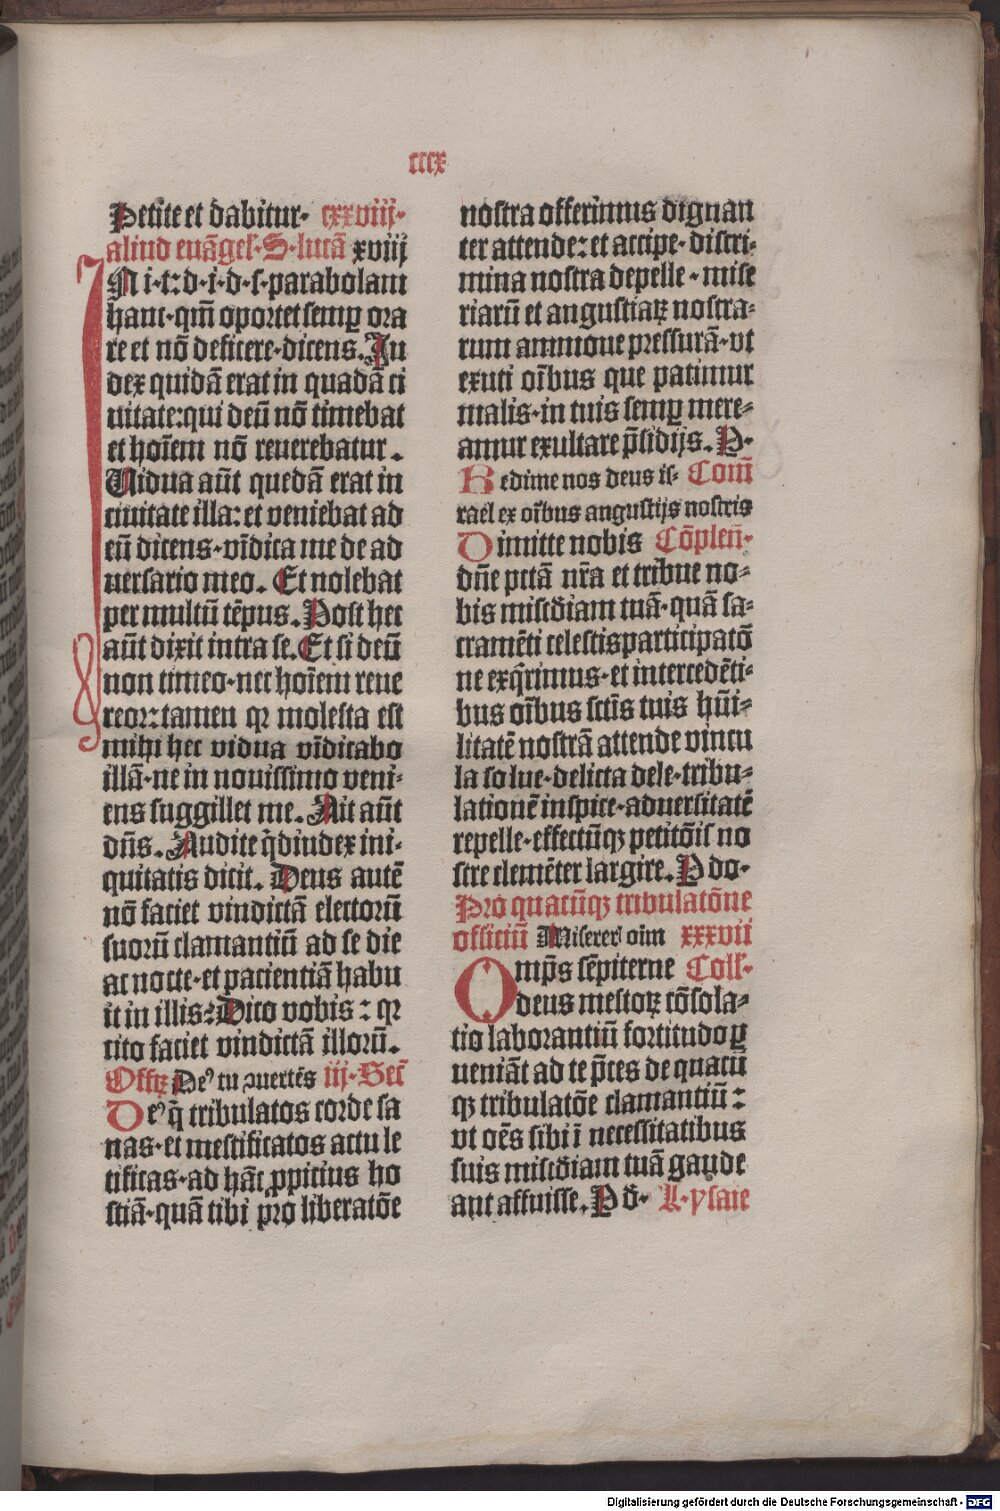 cccx
Petite et dabitur· cxxviij·
aliud euãgel̃·S·lucã xviij
IN i·t:d·i·d·s·parabolam
hanc·qm̃ oportet semꝑ ora
re et nõ deficere·dicens. Ju
dex quidã erat in quadã ci
uitate:qui deũ nõ timebat
et hoĩem nõ reuerebatur.
Uidua aũt quedã erat in
ciuitate illa: et veniebat ad
eũ dicens·vĩdica me de ad
uersario meo. Et nolebat
per multũ tẽpus. Post hec
aũt dixit intra se. Et si deũ
non timeo·nec hoĩem reue
reor: tamen qꝛ molesta est
mihi hec vidua vĩdicabo
illã·ne in nouissimo veni-
ens suggillet me. Ait aũt
dñs. Audite q̃d iudex ini-
quitatis dicit. Deus autẽ
nõ faciet vindictã electorũ
suorũ clamantiũ ad se die
ac nocte·et pacientiã habu
it in illis: Dico vobis : qꝛ
cito faciet vindictã illorũ.
Offꝫ Deꝰ tu ↄuertẽs iij·Sec̃
Deꝰ q̃ tribulatos corde sa
nas·et mestificatos actu le
tificas·ad hãc ꝓpitius ho
stiã·quã tibi pro liberatõe
nostra offerimus dignan
ter attende: et accipe·discri-
mina nostra depelle·mise
riarũ et angustiaꝝ nostra-
rum ammoue pressurã·vt
exuti oĩbus que patimur
malis·in tuis semꝑ mere-
amur exultare p̃sidijs. P·
Redime nos deus is- Com̃
rael ex oĩbus angustijs nostris
Dimitte nobis Cõplen̄·
dñe pctã nr̃a et tribue no-
bis miscdĩam tuã·quã sa-
cramẽti celestis participatõ
ne exq̃rimus·et intercedẽti-
bus oĩbus sctĩs tuis hũi-
litatẽ nostrã attende vincu
la solue·delicta dele·tribu-
lationẽ inspice·aduersitatẽ
repelle·effectũqꝫ petitõis no
stre clemẽter largire. P do·
Pro quacũqꝫ tribulatõne
officiũ Misererꝭ oim xxxvii
Omp̃s sẽpiterne Coll̃·
deus mestoꝝ cõsola-
tio laborantiũ fortitudo ꝑ
ueniãt ad te p̃ces de quacũ
qꝫ tribulatõe clamantiũ :
vt oẽs sibi ĩ necessitatibus
suis miscdĩam tuã gaude
ant affuisse. P d̃· L·ysaie
Digitalisierung gefördert durch die Deutsche Forschungsgemeinschaft - DFG